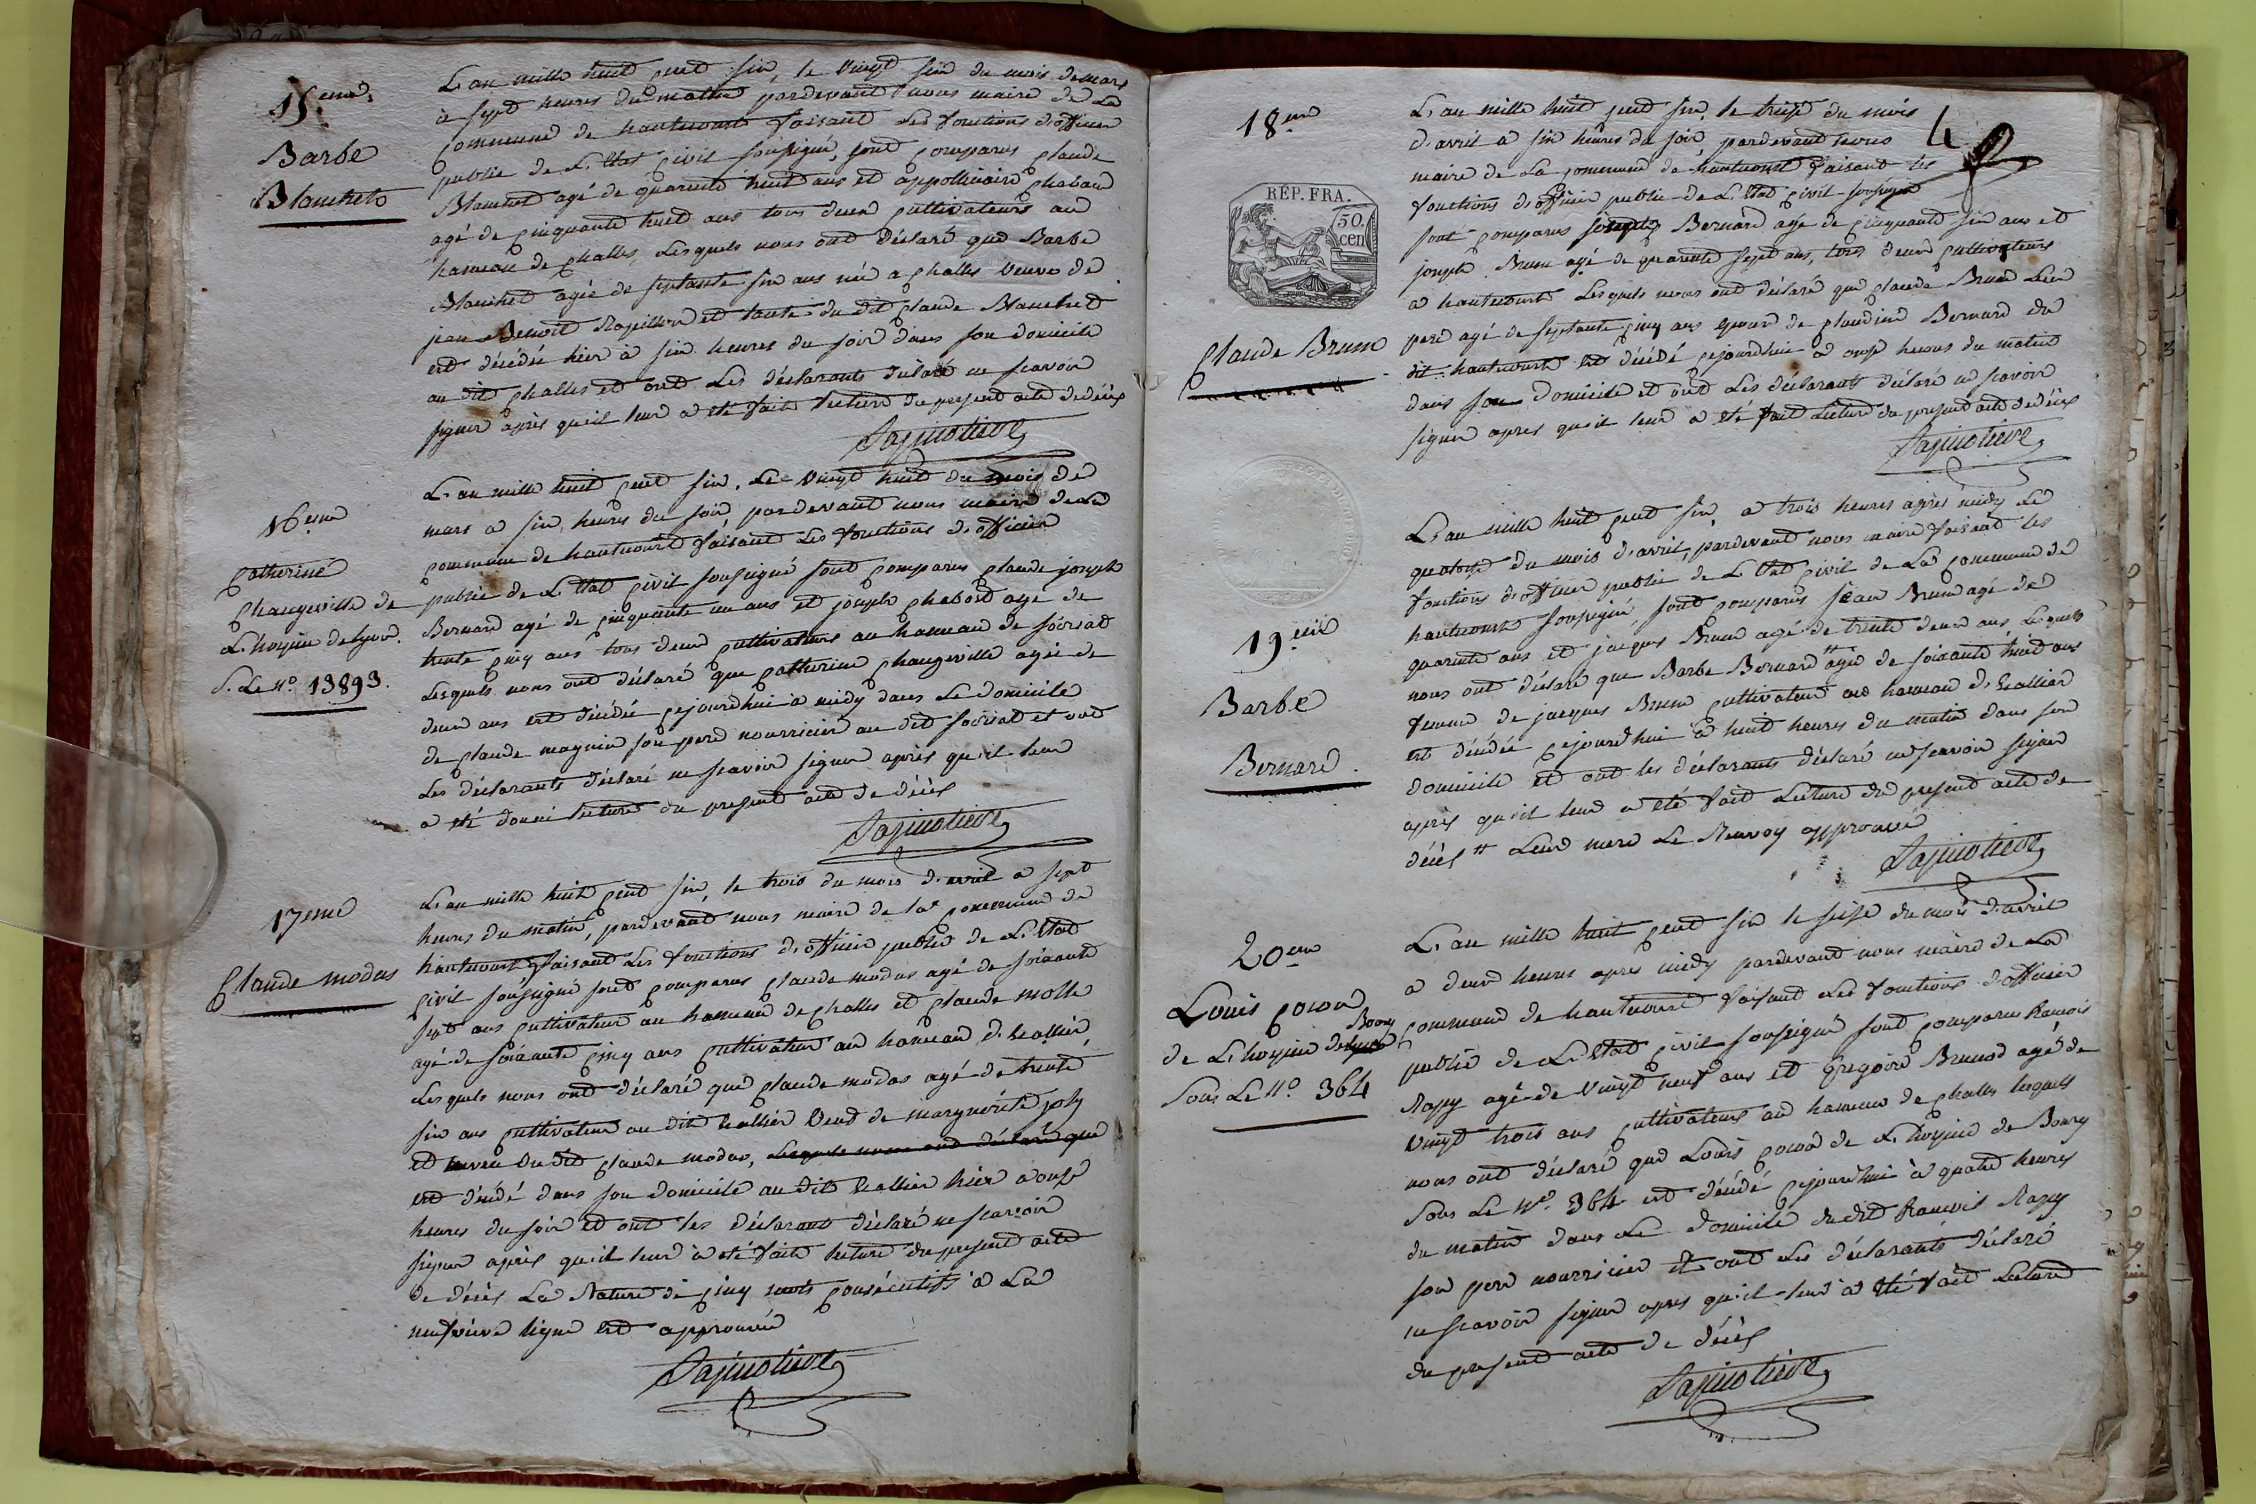 15.eme
Barbe
Blanchet
L'an mille huit cent six, le vingt six du mois de mars
à sept heures du matin pardevant nous maire de La
Commune de hautecourt faisant Les fonctions d'officier
public de L'Etat Civil soussigné, sont comparus Claude
Blanchet agé de quarente huit ans et appollinaire Chabaud
agé de cinquante huit ans tous deux cultivateurs au
hameau de Challes, Lesquels nous ont déclaré que Barbe
Blanchet agée de septante six ans née a Challes veuve de
jean Benoit Rapillon et tante du dit Claude Blanchet
est décédée hier à six heures du soir dans son domicile
au dit Challes et ont Les déclarants déclaré ne scavoir
signer après qu'il leur a été faite lecture du present acte de décès
16.eme
Catherine
Changeville de
L'hospice de Lyon.
S. Le N.o 13893.
L'an mille huit cent six, Le vingt huit du mois de
mars a six heures du soir pardevant nous maire de La
commune de hautecourt faisant Les fonctions d'officier
public de L'Etat Civil soussigné sont comparus Claude joseph
Bernard agé de cinquante un ans et joseph Chabord agé de
trente cinq ans tous deux cultivateurs au hameau de soirsat
Lesquels nous ont déclaré que Catherine Changeville agée de
deux ans est décédée cejourdhui à midy dans Le domicile
de Claude magnin son pere nourricier au dit soirsat et ont
Les déclarants déclaré ne scavoir signer après qu'il leur
a été donné lecture du present acte de décès
17.eme
Claude modas
L'an mille huit cent six, le trois du mois d'avril a sept
heures du matin, pardevant nous maire de la commune de
hautecourt faisant Les fonctions d'officier public de L'Etat
Civil soussigné sont comparus Claude modas agé de soixante
sept ans cultivateur au hameau de Challes et Claude molle
agé de soixante cinq ans cultivateur au hameau d'hallier,
Lesquels nous ont déclaré que Claude modas agé de trente
six ans cultivateur au dit hallier veuf de marguerite joly
et neveu du dit Claude modas, Lesquels nous ont déclaré que
est décédé dans son domicile au dit hallier hier a onze
heures du soir et ont les déclarants déclaré ne scavoir
signer après qu'il leur a été faite lecture du present acte
de décès La Rature de cinq mots consécutifs à La
neufvieme ligne est approuvée
18.me
RÉP. FRA.
50.
cen
Claude Brun
4
L'an mille huit cent six, le treize du mois
d'avril a six heures du soir, pardevant nous
maire de La commune de hautecourt faisant les
fonctions d'officier public de L'Etat Civil soussigné
sont comparus joseph Bernard agé de cinquante six ans et
joseph Brun agé de quarente sept ans, tous deux cultivateurs
a hautecourt Lesquels nous ont déclaré que Claude Brun Leur
pere agé de septante cinq ans epoux de Claudine Bernard du
dit hautecourt est décédé cejourdhui a onze heures du matin
dans son domicile et ont Les déclarants déclaré ne scavoir
signer apres qu'il leur a été fait Lecture du present acte de décès
19.eme
Barbe
Bernard.
L'an mille huit cent six, a trois heures après midy Le
quatorze du mois d'avril, pardevant nous maire faisant les
fonctions d'officier public de L'Etat Civil de La commune de
hautecourt soussigné, sont comparus jean Brun agé de
quarente ans et jacques Brun agé de trente deux ans Lesquels
nous ont déclaré que Barbe Bernard # agée de soixante huit ans
femme de jacques Brun cultivateur au hameau d'hallier
est décédée cejourd'hui à huit heures du matin dans son
domicile et ont les déclarants déclaré ne scavoir signer
après qu'il leur a été fait Lecture du present acte de
décès # Leur mere Le Renvoy approuvé
20.eme
Louis
de L'hospice de Lyon Bourg
Sous Le N.o 364
L'an mille huit cent six le seize du mois d'avril
a deux heures apres midy pardevant nous maire de La
commune de hautecourt faisant Les fonctions d'officier
public de L'Etat Civil soussigné sont comparus francois
Rapy agé de vingt neuf ans et Gregoire Brunod agé de
vingt trois ans cultivateurs au hameau de Challes lesquels
nous ont déclaré que Louis de L'hospice de Bourg
Sous Le N.o 364 est décédé cejourdhui à quatre heures
du matin dans Le domicile du dit francois Rapy
son pere nourricier et ont Les déclarants déclaré
ne scavoir signer apres qu'il leur a été fait Lecture
du present acte de décès